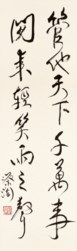 管他天下千萬事
閒來輕笑兩三聲
蔡瀾